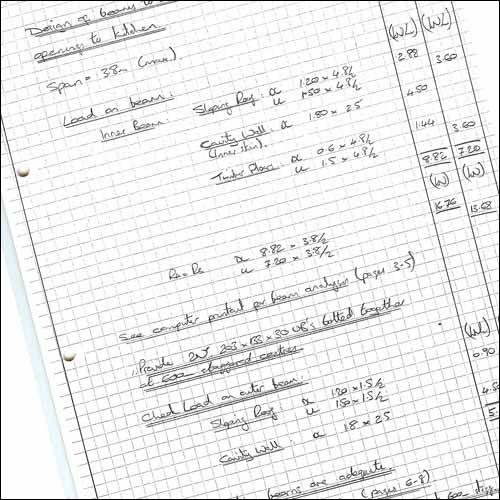 Design of beams to
opening to kitchen
Span = 3.8m (max).
(WL) (WL)
Load on beam:
Inner Beam:
Sloping Roof: 1.20 x 4.8/2 2.88
u 1.50 x 4.8/2 3.60
Cavity Wall: 1.80 x 2.5 4.50
(Inner skin)
Timber Floor: 0.6 x 4.8/2 1.44
u 1.5 x 4.8/2 3.60
8.82 7.20
(W) (W)
8.82 x 3.8/2 16.76
u 7.20 x 3.8/2 13.68
See computer printout for beam analysis (pages 3-5)
Provide 2N° 203 x 133 x 30 UB's bolted together
at 600 staggered centres
Check Load on outer beam: (WL)
Sloping Roof 1.20 x 1.5/2 0.90
u 1.50 x 1.5/2
Cavity Wall: 1.8 x 2.5 4.50
5
beams are adequate
(pages 6-8)
600